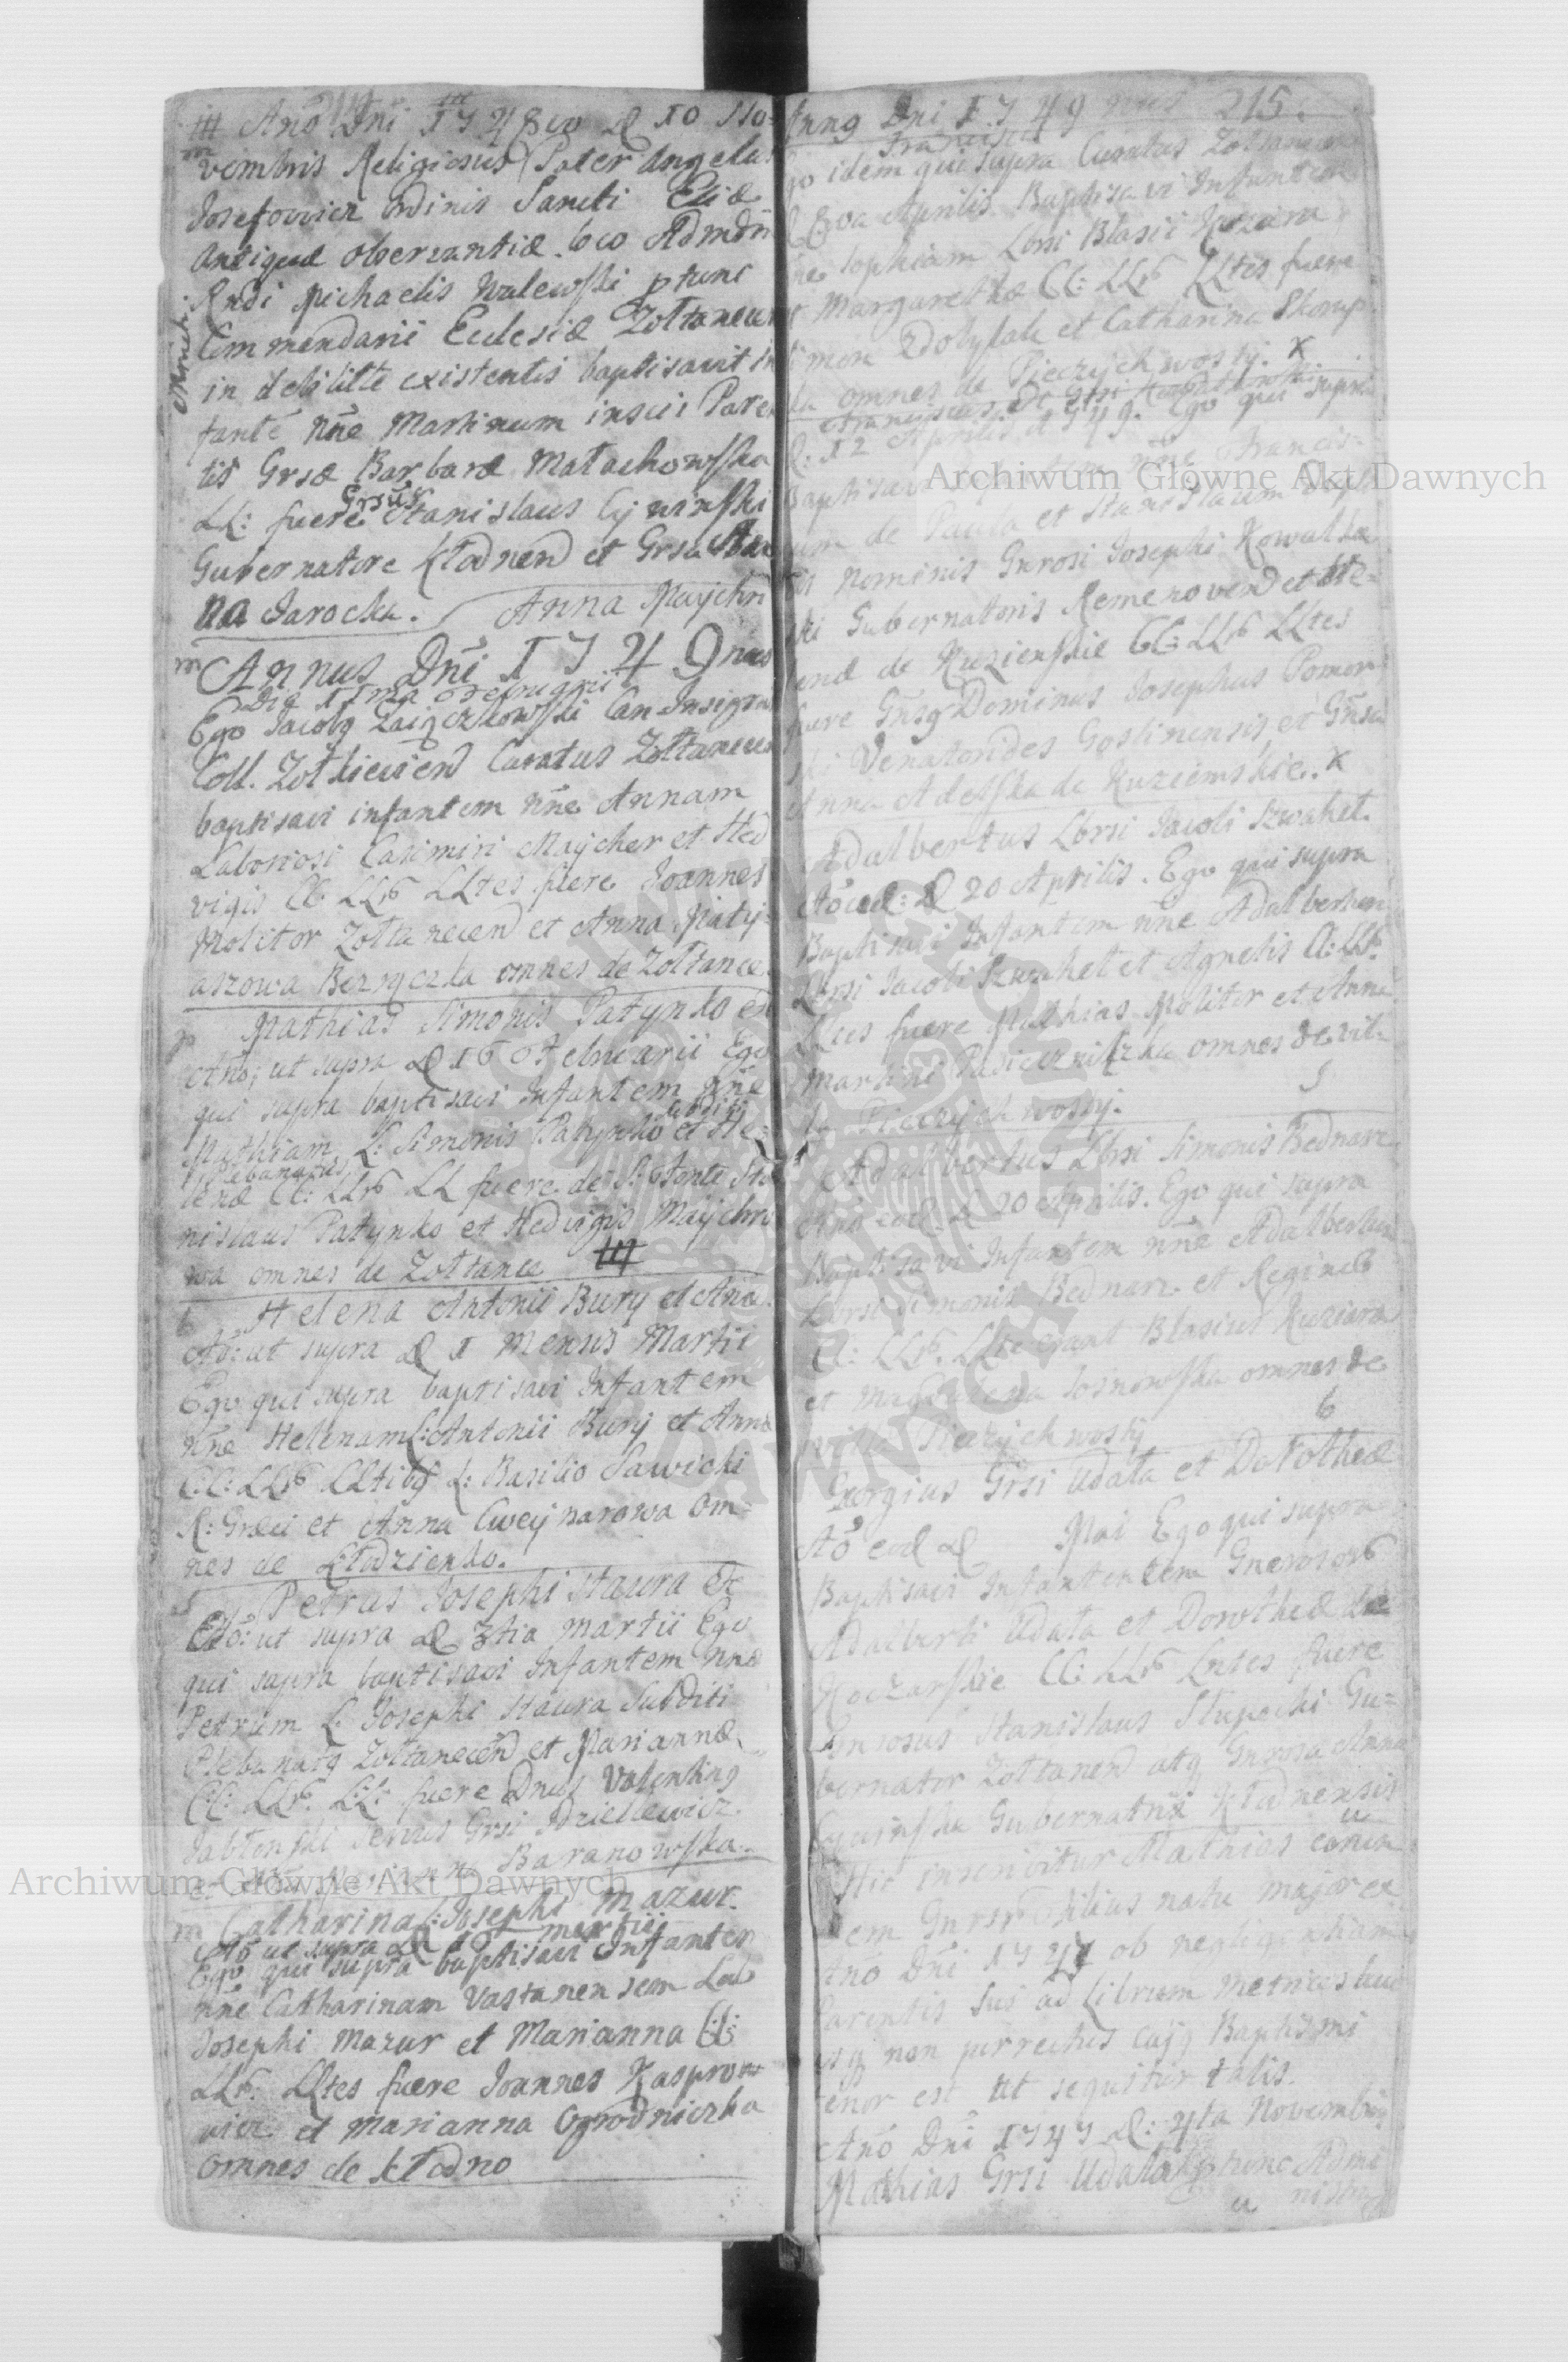 Ano Dni 1748vo D 10 No-
vembris Religiosus Pater Angelus
Josefowicz Ordinis Sancti Eliæ
Antiquæ observantiæ loco Admdm
Rndi Michaelis Walewski ptunc
Commendarii Eclesiæ Zołtanecen
in debilitte existentis baptisavit In
fante nne Martinum inscii Paren
tis Grsæ Barbaræ Małachowska
LL: fuere Grsus Stanislaus Cywinski
Gubernatore Kładnen et Grsa Ma
na Jarocka. Anna Maychri
Annus Dni 1749nus
Die 11ma Februarii
Ego Jacobg Zaiączkowski Can Insignis
Coll. Zołkiewien Curatus Zołtanecen
baptisavi infantem nne Annam
Laboriosi Casimiri Maycher et Hed
vigis CC LLrs LLtes fuere Joannes
Molitor Zołtanecen et Anna Matyj-
aszowa Bernyczka omnes de Zołtance
Mathias Simonis Patynko
Ano; ut supra D 16 Februarii Ego
qui supra baptisavi Infantem nne
Mathiam L: Simonis Patynko et He-
subditi
Plebanatus
lenæ CC: LLrs LL fuere de S: Fonte Sta
nislaus Patynko et Hedvigis Maychro
wa omnes de Zołtance
Helena Antonii Bury et Anna
Ao: ut supra D 1 Mensis Martii
Ego qui supra baptisavi Infantem
nne Helenam L: Antonii Bury et Annæ
CC: LLrs LLtibg L: Basilio Sawicki
R: Græci et Anna Cweynarowa om-
nes de Kłodzienko.
Petrus Josephi Staura et
Ao: ut supra D 3tia Martii Ego
qui supra baptisavi Infantem nne
Petrum L: Josephi Staura Subditi
Plebanatg Zołtanecen et Mariannæ
CC: LLrs. LL: fuere Dnus Valenting
Jabłonski servus Grsi Dziellewicz
Baranowska.
Catharina L: Josephi Mazur.
Ao ut supra D martii
Ego qui supra baptisavi Infantem
nne Catharinam Vastanensem Lab
Josephi Mazur et Marianna CC:
LLrs. LLtes fuere Joannes Kaspro
wicz et Marianna Ogrodniczka
omnes de Kładno
Anng Dni 1749 nus 215.
Francisci
Ego idem qui supra Curatus Zołtanecen
D 8va Aprilis Baptisavi Infantem
nne Sophiam Lbrsi Blasii Kuziara
et Margarethæ CC: LLrs LLtes fuere
Simon Zdobylak et Catharina Skorup
ka omnes de Pieczychwosty. x
D: 12 Aprilis 1749. Ego qui supra
Baptisavi nne Francis-
cum de Paula et Stanislaum
nominis Gnrosi Josephi Kowalko
ski Gubernatoris Remenoven et He-
lenæ de Kuzienskie CC: LLrs LLtes
fuere Gnsg Dominus Josephus Pomor
ski Venatorides Gostinensis et Gnsa
Anna Adelska de Kuziemskie. x
Adalbertus Lbrsi Jacobi Szwahet
Ao eod: D 20 Aprilis. Ego qui supra
Baptisavi Infantem nne Adalbertum
Lbrsi Jacobi Szwahet et Agnetis CC: LLrs.
LLtes fuere Mathias Molitor et Anna
Martini Pasieczniczka omnes de vil-
la Pieczychwosty. 5
Adalbertus Lbrsi Simonis Bednarz
Ano eod D 20 Aprilis. Ego qui supra
Baptisavi Infantem nne Adalbertum
Lbrsi Simonis Bednarz et Reginæ
CC: LLrs. LLte erant Blasius Kuziara
et Magdalena Sosnowska omnes de
villa Pieczychwosty 6
Georgius Grsi Udała et Dorotheæ
Ao eod D Mai Ego qui supra
Baptisavi Infantem Gnrosors
Adalberti Udała et Dorotheæ de
Koczarskie CC: LLrs LLtes fuere
Gnrosus Stanislaus Słupecki Gu-
bernator Zołtanen atq Gnrosa Anna
Cywinska Gubernatrix Kładnensis
Hic inscribitur Mathias eorun
dem Gnrsr Filius natu major ex
Ano Dni 1747 ob negligentiam
Parentis sui ad Librum Metrices huc
usq non perrectus cujg Baptismi
tenor est ut sequitur talis.
Ano Dni 1747 D: 4ta Novembris
Mathias Grsi Udała ptunc Admi
nistra
Archiwum Główne Akt Dawnych
Archiwum Główne Akt Dawnych
ARCHIWUM GŁÓWNE AKT DAWNYCH